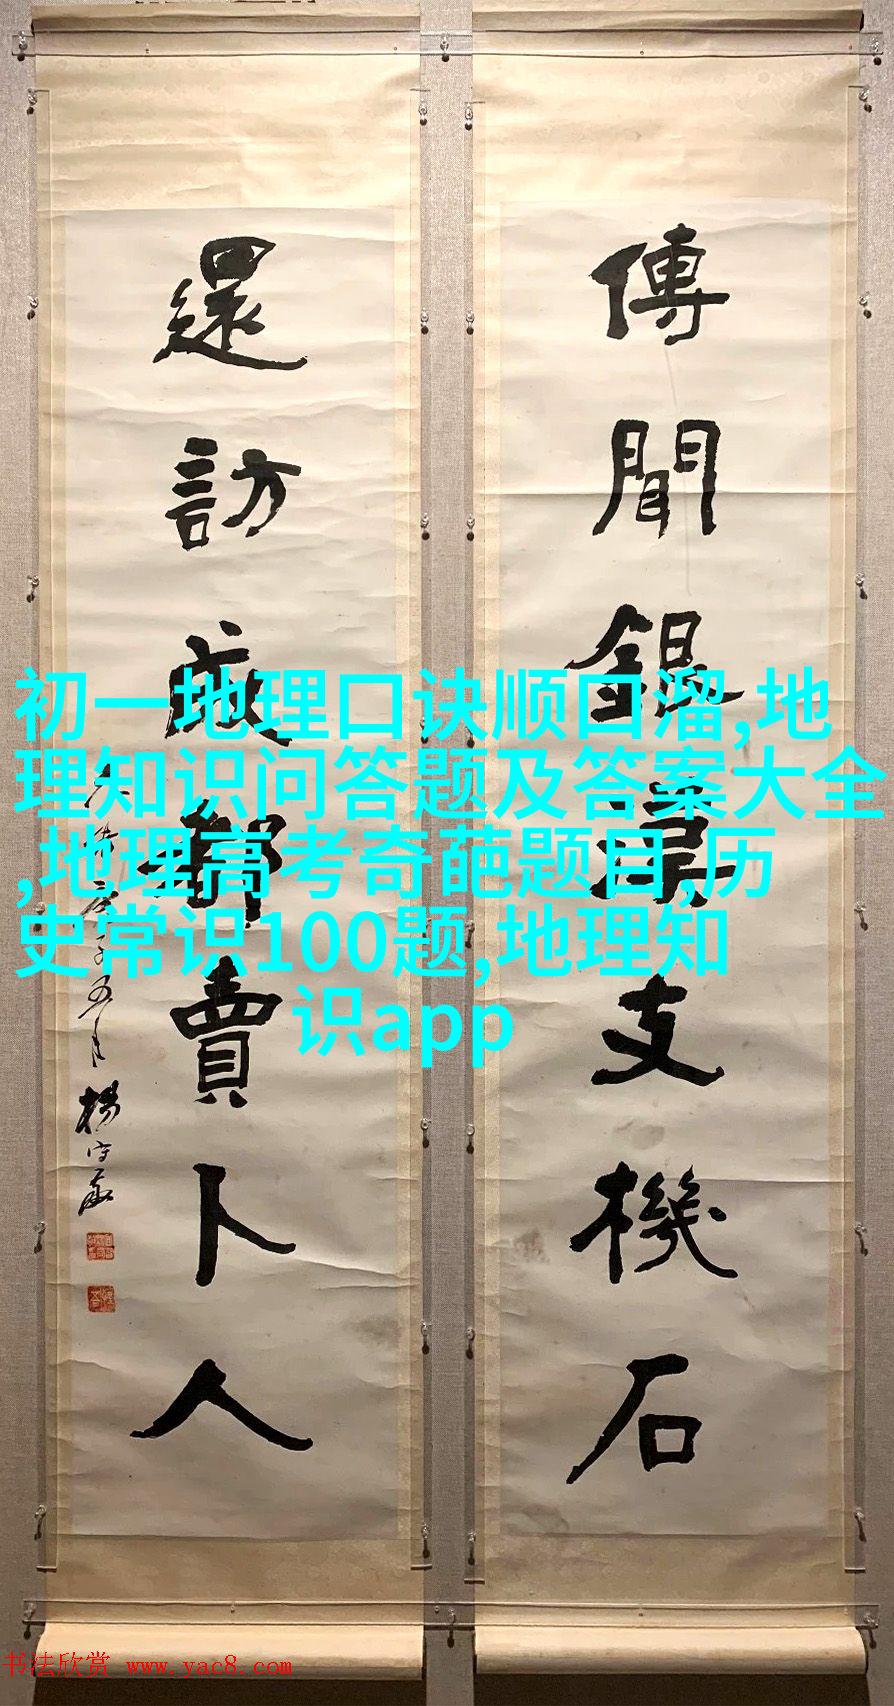 傳聞銀漢支機石
還訪成都賣卜人
庚子五月楊守敬
初一地理口诀顺口溜,地
理知识问答题及答案大全
,地理高考奇葩题目,历
史常识100题,地理知
识app
书法欣赏 www.yac8.com